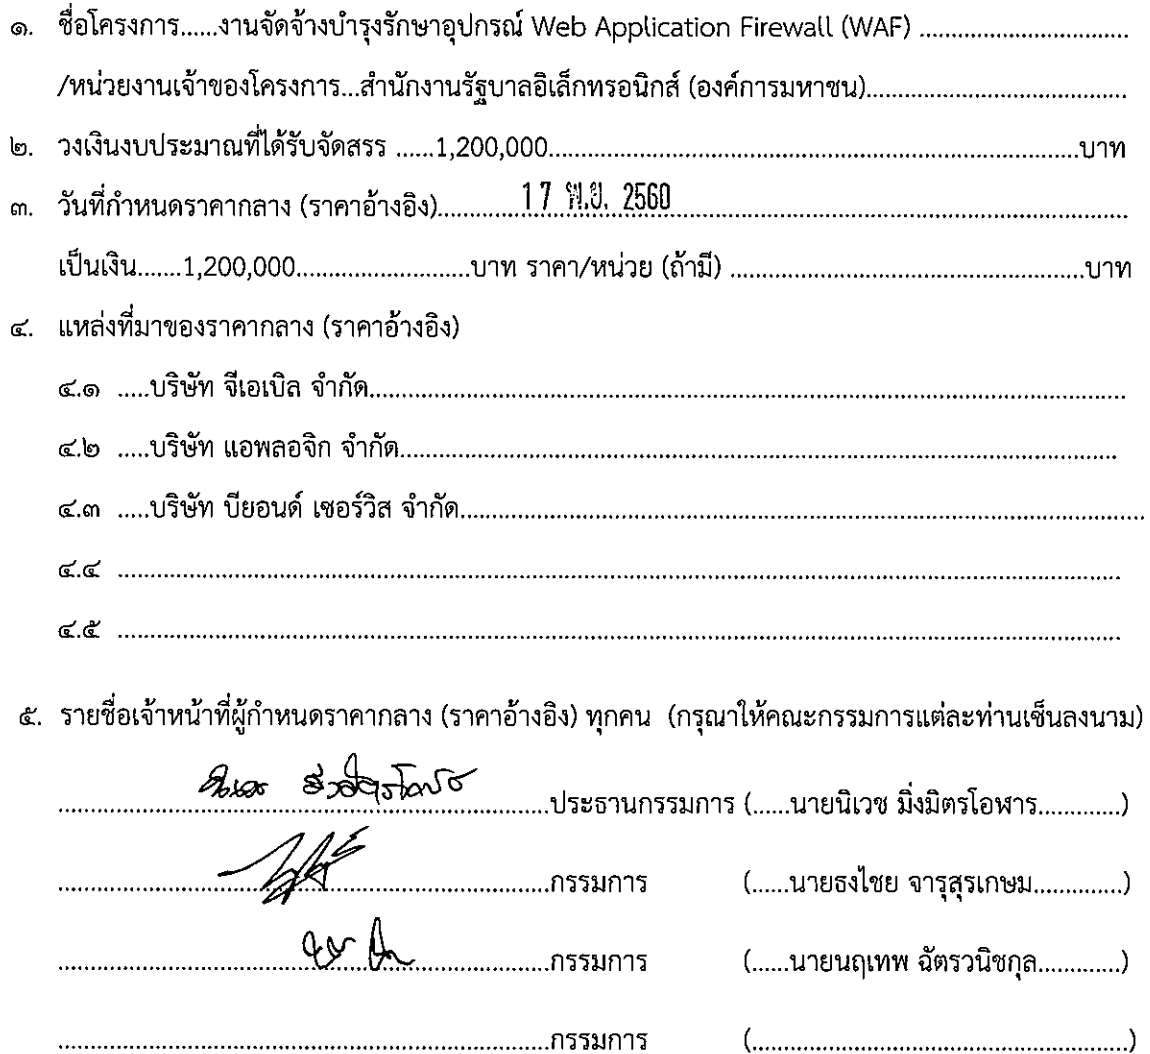 ๑. ชื่อโครงการ......งานจัดจ้างบำรุงรักษาอุปกรณ์ Web Application Firewall (WAF) ................................
/หน่วยงานเจ้าของโครงการ...สำนักงานรัฐบาลอิเล็กทรอนิกส์ (องค์การมหาชน)........................................
๒. วงเงินงบประมาณที่ได้รับจัดสรร ......1,200,000................................................................................บาท
๓. วันที่กำหนดราคากลาง (ราคาอ้างอิง).............17 พ.ย. 2560......................................................................
เป็นเงิน.......1,200,000...........................บาท ราคา/หน่วย (ถ้ามี) ......................................................บาท
๔. แหล่งที่มาของราคากลาง (ราคาอ้างอิง)
๔.๑ .....บริษัท จีเอเบิล จำกัด....................................................................................................................
๔.๒ .....บริษัท แอพลอจิก จำกัด..............................................................................................................
๔.๓ .....บริษัท บียอนด์ เซอร์วิส จำกัด.........................................................................................................
๔.๔ .........................................................................................................................................................
๔.๕ .........................................................................................................................................................
๕. รายชื่อเจ้าหน้าที่ผู้กำหนดราคากลาง (ราคาอ้างอิง) ทุกคน (กรุณาให้คณะกรรมการแต่ละท่านเซ็นลงนาม)
...........................................................................ประธานกรรมการ (......นายนิเวช มิ่งมิตรโอฬาร.............)
...........................................................................กรรมการ (......นายธงไชย จารุสุรเกษม..............)
...........................................................................กรรมการ (......นายนฤเทพ ฉัตรวนิชกุล.............)
...........................................................................กรรมการ (..........................................................)